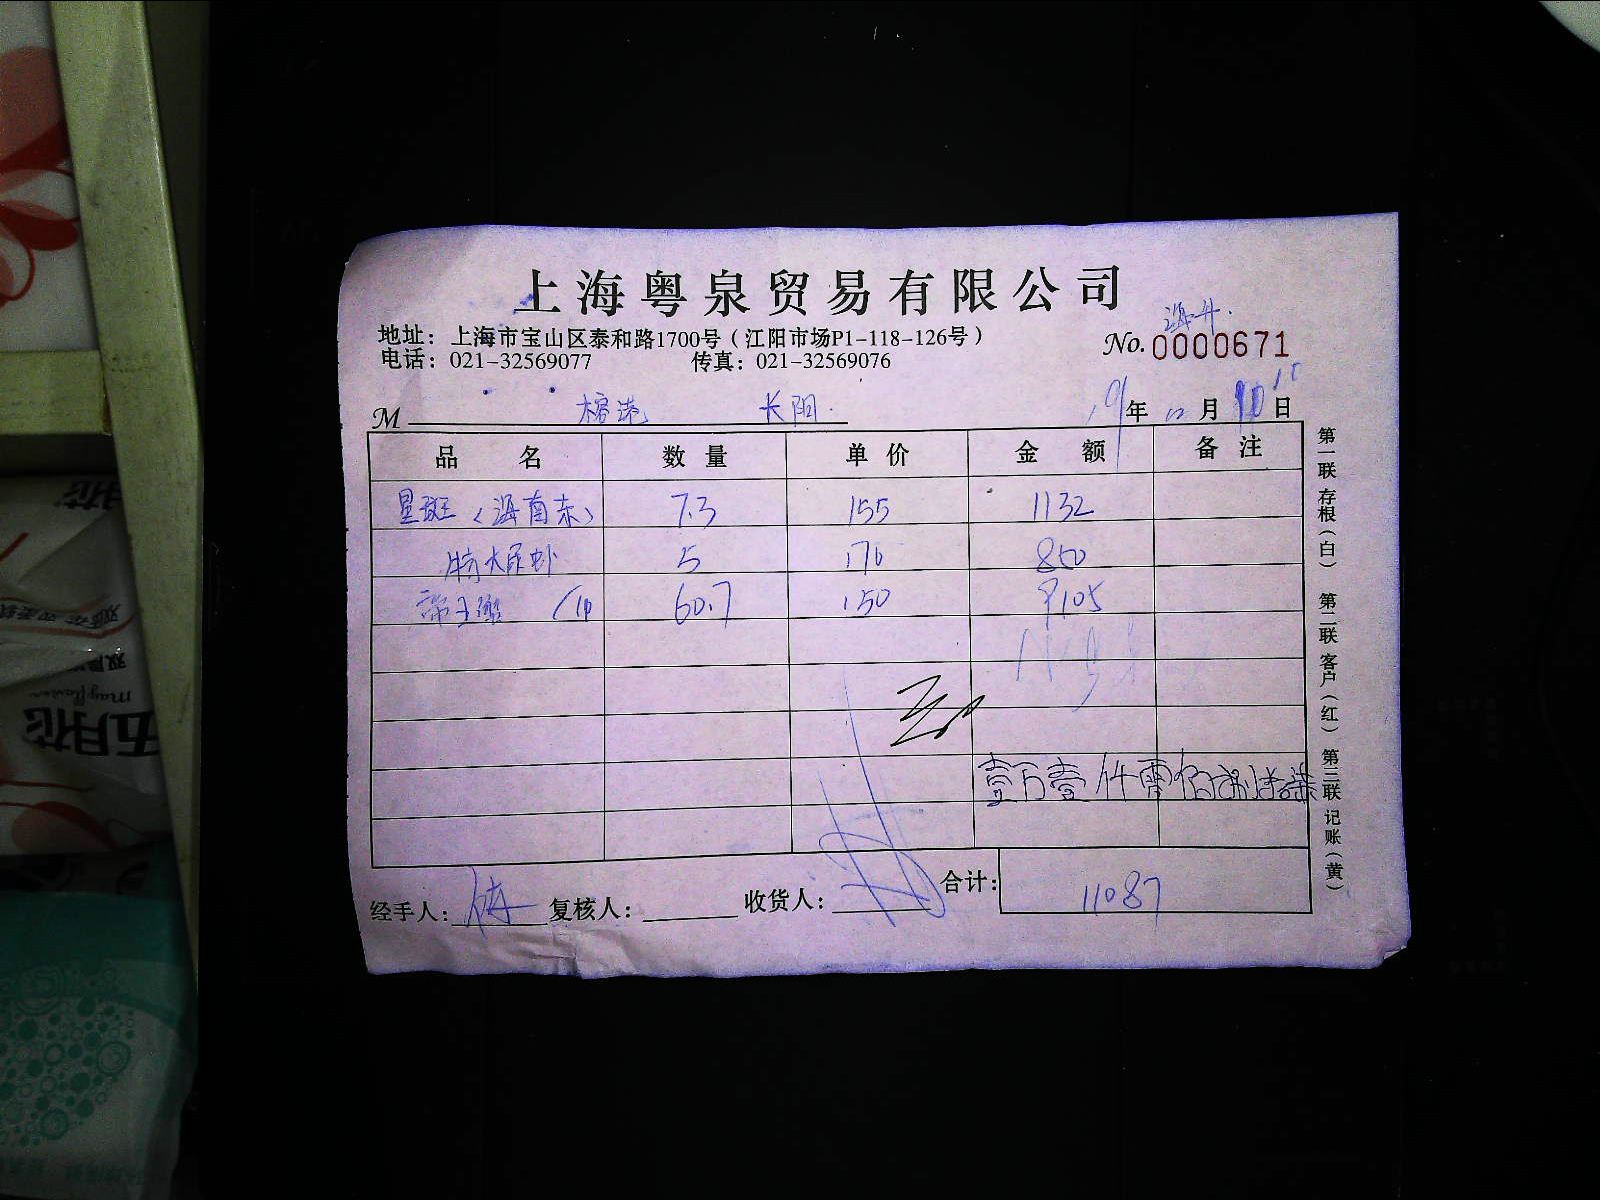 上海粤泉贸易有限公司
地址：上海市宝山区泰和路1700号（江阳市场P1-118-126号）
海升
No.0000671
电话：021-32569077 传真：021-32569076
M 榕港 长阳 19年12月10日
品名 数量 单价 金额 备注
星斑（海南东） 7.3 155 1132
特大尿虾 5 170 850
帝王蟹 60.7 150 9105
壹万壹仟零佰捌拾柒
经手人： 复核人： 收货人： 合计：11087
第一联存根（白） 第二联客户（红） 第三联记账（黄）
五月花
mayflower